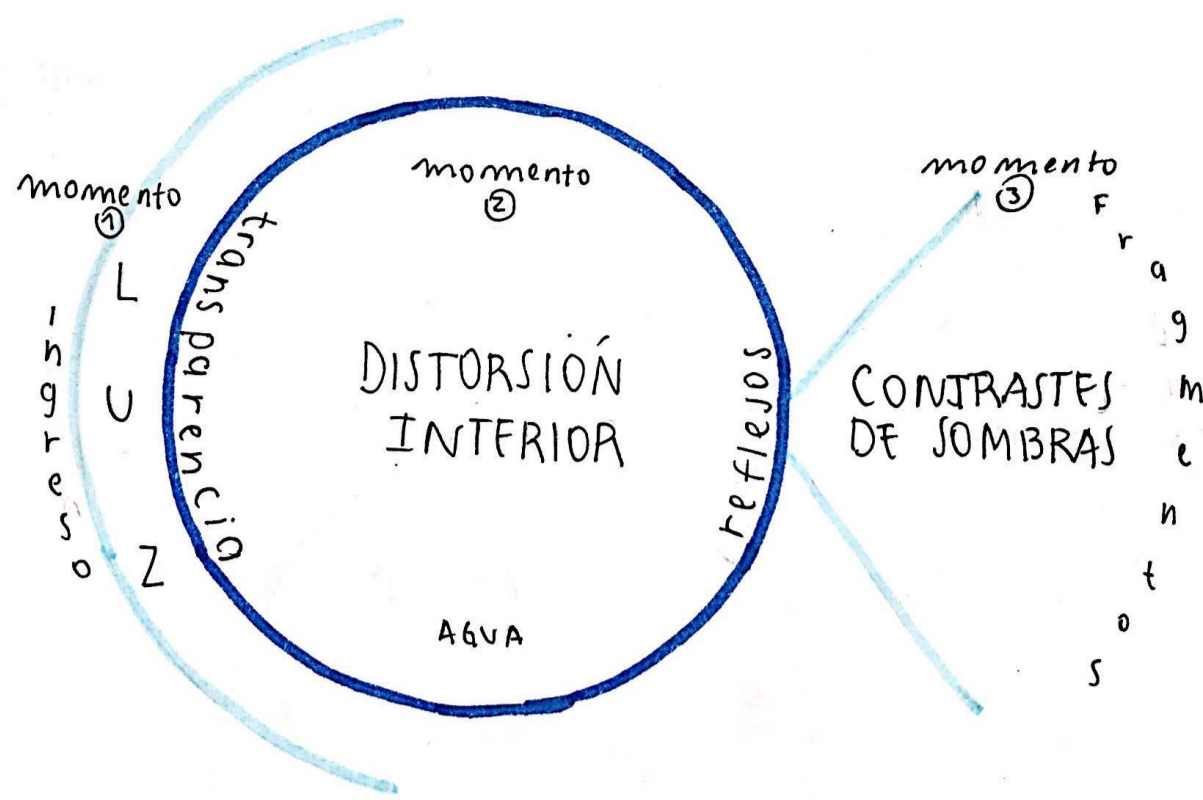 momento
①
Ingreso
LUZ
transparencia
momento
②
DISTORSIÓN
INTERIOR
AGUA
reflejos
momento
③
CONTRASTES
DE SOMBRAS
Fragmentos